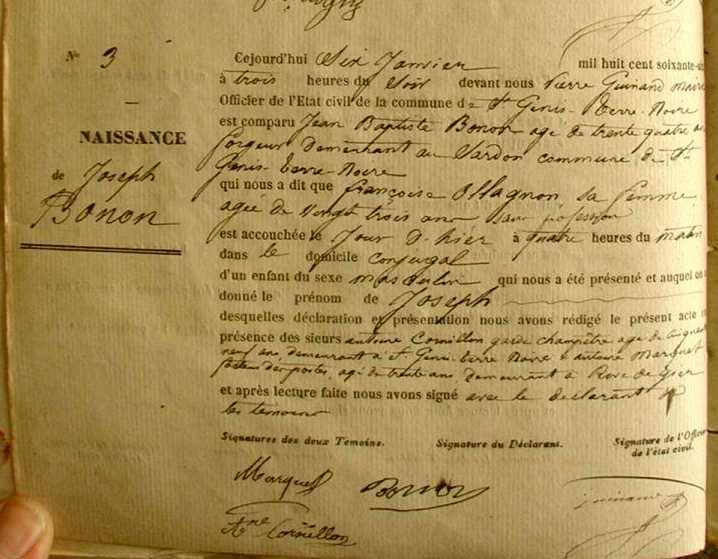 N° 3
NAISSANCE
de Joseph
Bonon
Cejourd'hui Six Janvier mil huit cent soixante-six
à trois heures du Soir devant nous Pierre Guinand Maire
Officier de l'Etat civil de la commune de St Genis-Terre-Noire
est comparu Jean Baptiste Bonon age de trente quatre ans
forgeur demeurant au Sardon commune de St
Genis-terre-Noire
qui nous a dit que françoise Ollagnon sa femme
agée de vingt trois ans sans profession
est accouchée le Jour d'hier à quatre heures du matin
dans le domicile conjugal
d'un enfant du sexe masculin qui nous a été présenté et auquel on a
donné le prénom de Joseph
desquelles déclaration et présentation nous avons rédigé le présent acte en
présence des sieurs antoine Cornillon garde champêtre age de cinquante
neuf ans, demeurant à St Genis-terre Noire & antoine Marquet
facteur des postes, agé de trente ans demeurant à Rive de Gier
et après lecture faite nous avons signé avec le declarant &
les temoins
Signatures des deux Témoins. Signature du Déclarant. Signature de l'Officier
de l'état civil.
Marquet Bonon Guinand
Ane Cornillon